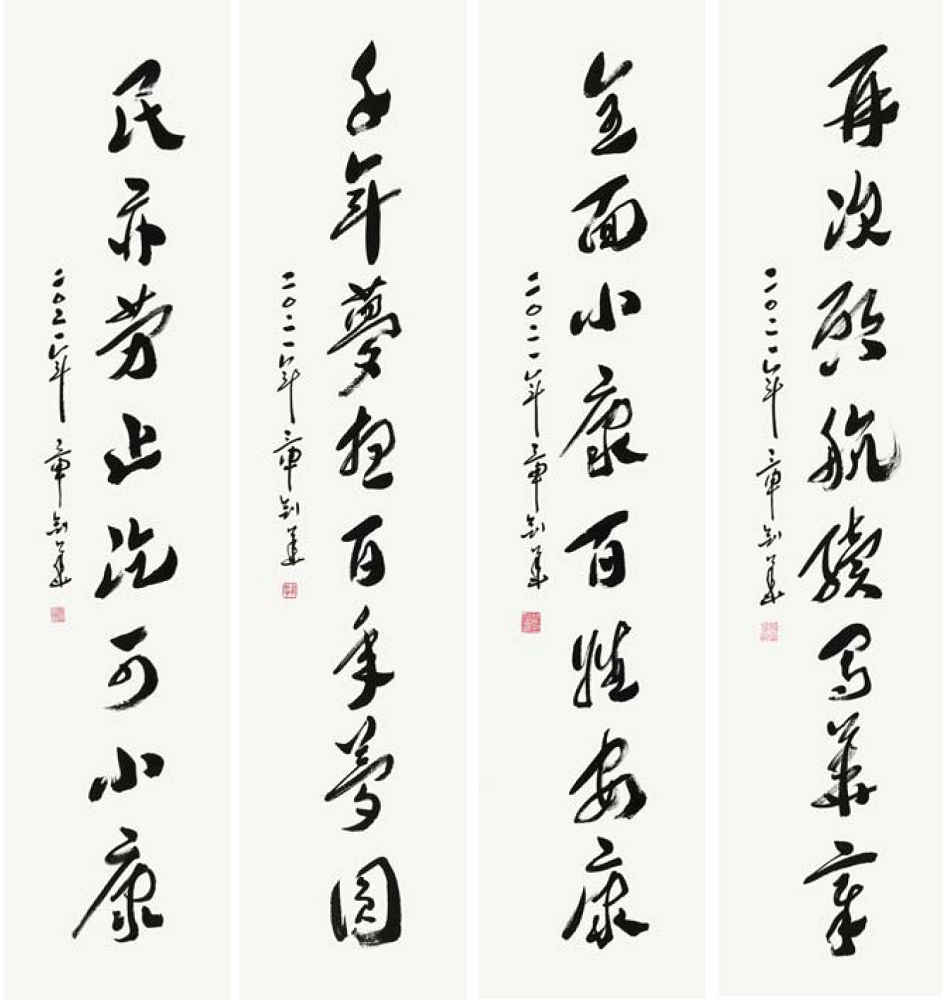 民亦劳止汔可小康
二〇二一年 章剑华
千年夢想百年夢圓
二〇二一年 章剑华
全面小康百姓安康
二〇二一年 章剑华
再次啟航續写華章
二〇二一年 章剑华